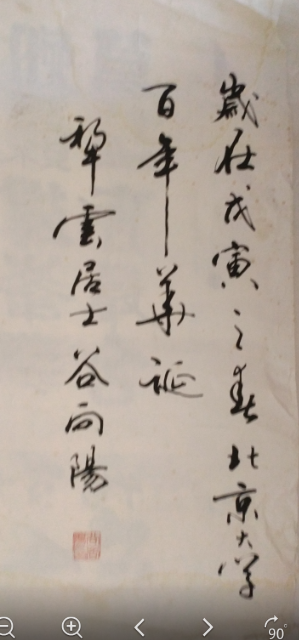 歲在戊寅之春北京大学
百年華誕
犂雲居士谷向陽
90°